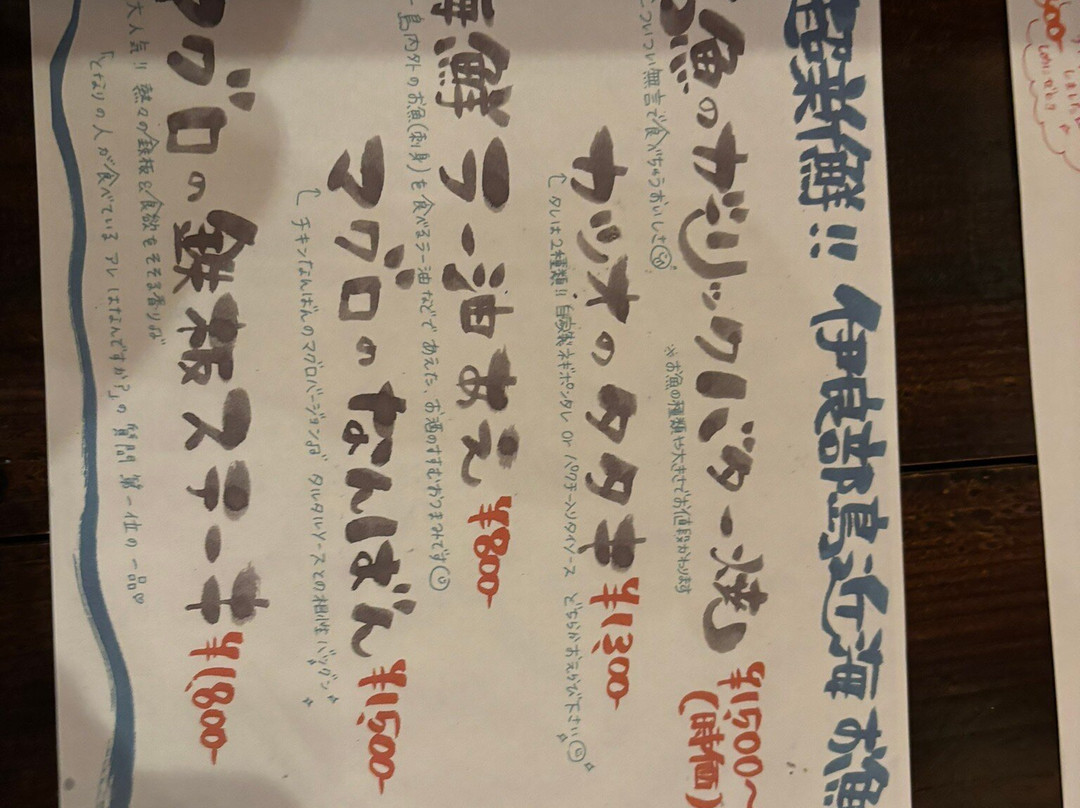 超新鮮!! 伊良部島近海 お魚
魚のガーリックバター焼 ¥1,500~
(時価)
ついつい無言で食べちゃうおいしさ
※お魚の種類や大きさでお値段かわります
カツオのタタキ ¥1,300-
タレは2種類!! 自家製ネギポンタレ or パクチー入りタイソース どちらかお えらび下さい
海鮮ラー油あえ ¥800-
島内外のお魚(刺身)を食べるラー油などであえた、お酒のすすむおつまみです
マグロのなんばん ¥1,500-
チキンなんばんのマグロバージョン タルタルソースとの相性バツグン
マグロの鉄板ステーキ ¥1,800-
大人気!! 熱々の鉄板&食欲をそそる香り
「となりの人が食べている アレはなんですか?」の質問 第一位の一品